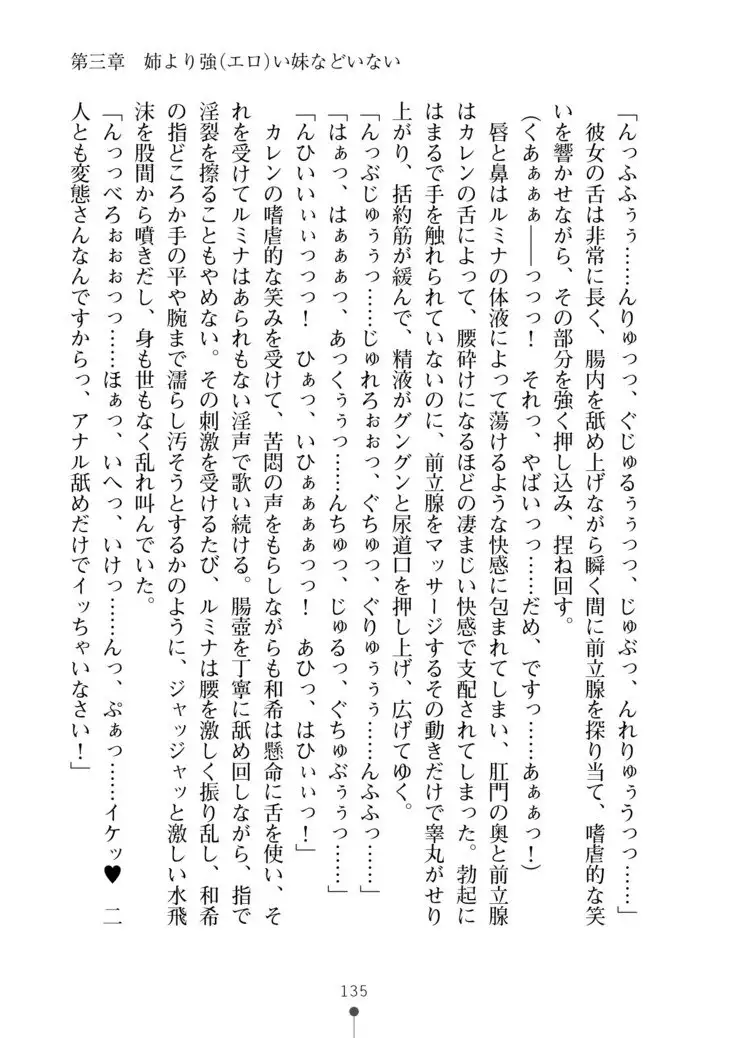 第三章　姉より強(エロ)い妹などいない
「んっふふぅぅ……んりゅっっ、ぐじゅるぅぅっっ、じゅぶっ、んれりゅぅうっっ……」
　彼女の舌は非常に長く、腸内を舐め上げながら瞬く間に前立腺を探り当て、嗜虐的な笑
いを響かせながら、その部分を強く押し込み、捏ね回す。
（くあぁぁぁ――っっっ！　それっ、やばいっっ……だめ、ですっ……あぁぁっ！）
　唇と鼻はルミナの体液によって蕩けるような快感に包まれてしまい、肛門の奥と前立腺
はカレンの舌によって、腰砕けになるほどの凄まじい快感で支配されてしまった。勃起に
はまるで手を触れられていないのに、前立腺をマッサージするその動きだけで睾丸がせり
上がり、括約筋が緩んで、精液がグングンと尿道口を押し上げ、広げてゆく。
「んっぶじゅぅぅっ……じゅれろぉぉっ、ぐちゅっ、ぐりゅぅぅぅ……んふふっ……」
「はぁっ、はぁぁぁっ、あっくぅぅっ……んちゅっ、じゅるっ、ぐちゅぶぅぅっ……」
「んひいいぃぃっっっ！　ひぁっ、いひぁぁぁぁっっ！　あひっ、はひぃぃっ！」
　カレンの嗜虐的な笑みを受けて、苦悶の声をもらしながらも和希は懸命に舌を使い、そ
れを受けてルミナはあられもない淫声で歌い続ける。腸壺を丁寧に舐め回しながら、指で
淫裂を擦ることもやめない。その刺激を受けるたび、ルミナは腰を激しく振り乱し、和希
の指どころか手の平や腕まで濡らし汚そうとするかのように、ジャッジャッと激しい水飛
沫を股間から噴きだし、身も世もなく乱れ叫んでいた。
「んっっべろぉぉぉっっ……ほぁっ、いへっ、いけっ……んっ、ぷぁっ……イケッ♥　二
人とも変態さんなんですからっ、アナル舐めだけでイッちゃいなさい！」
135